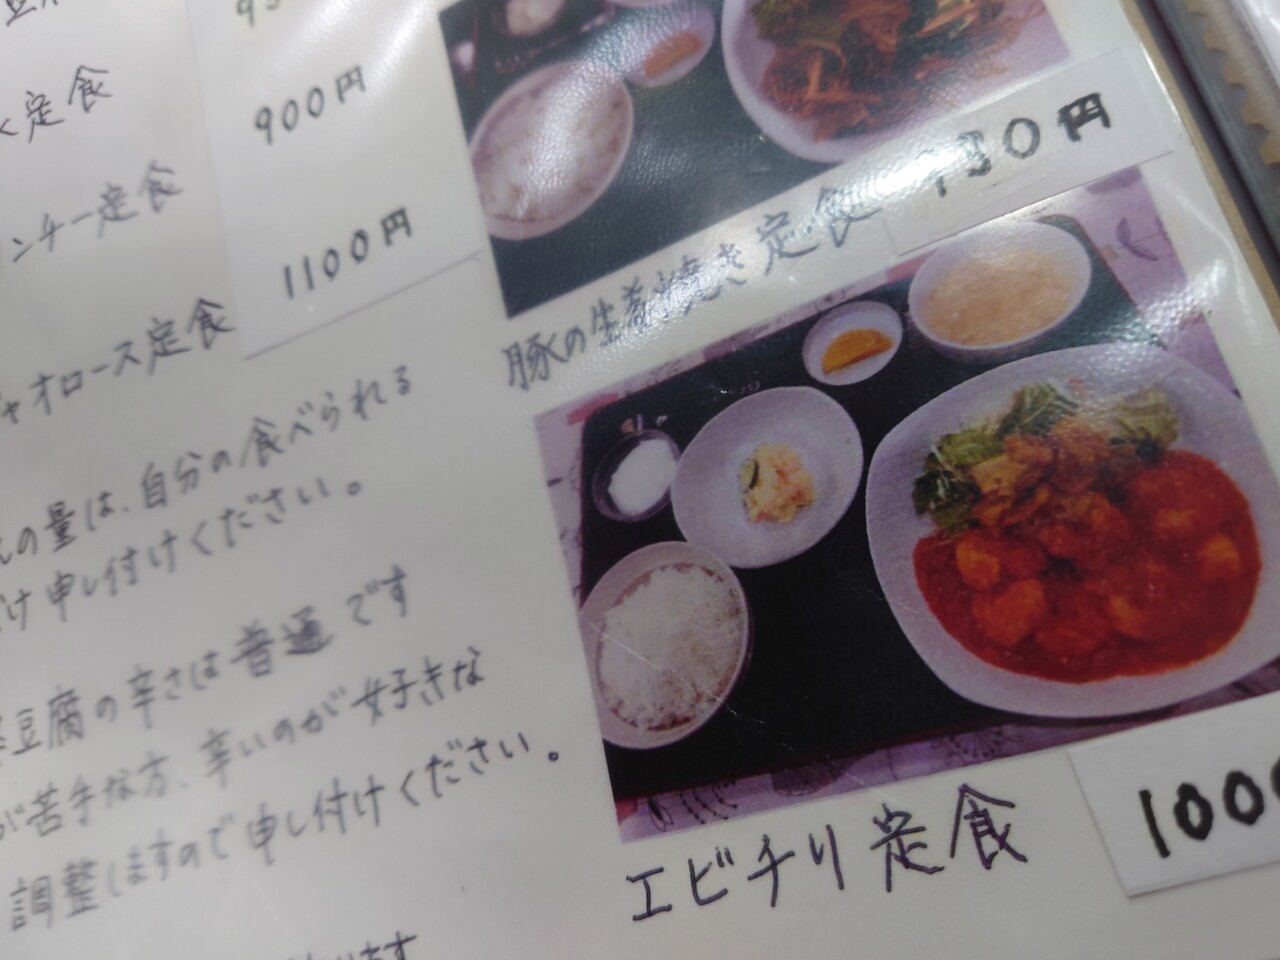 定食
900円
ンチー定食
1100円
ャオロース定食
の量は、自分の食べられる
け申し付けください。
豆腐の辛さは普通です
が苦手な方、辛いのが好きな
調整しますので申し付けください。
ます
豚の生姜焼き定食
円
エビチリ定食
1000